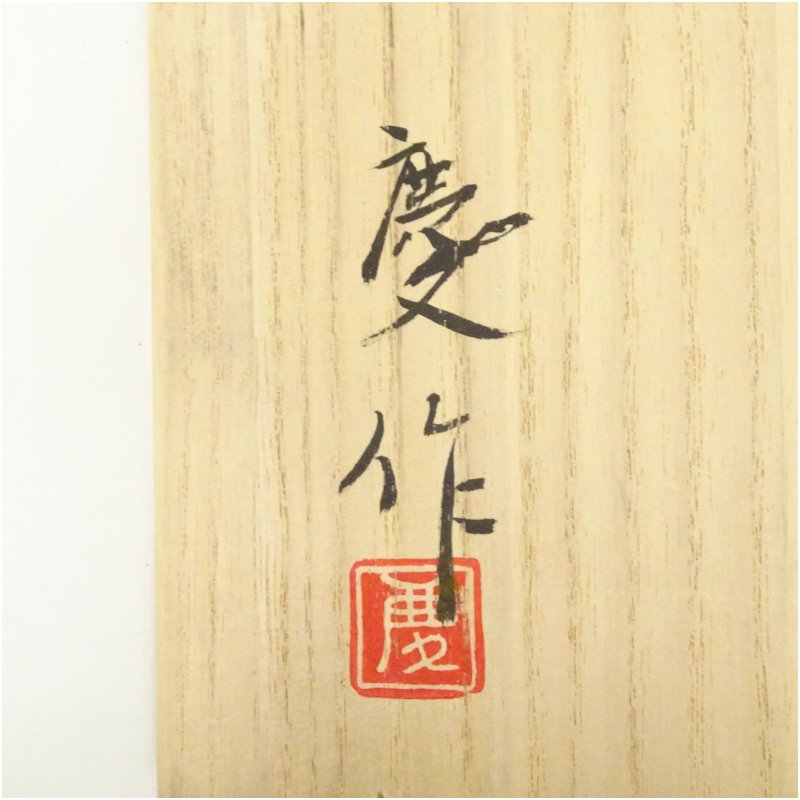 慶作
慶